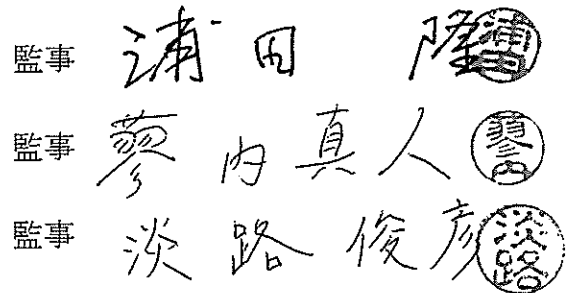 監事 浦田 隆 浦田
監事 蓼内真人 蓼内
監事 淡路俊彦 淡路